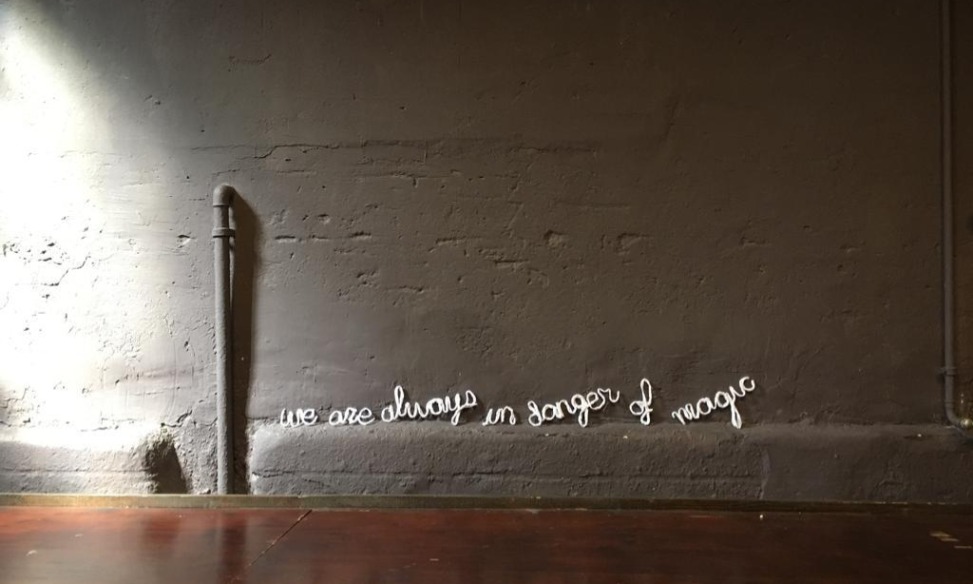 we are always in danger of magic